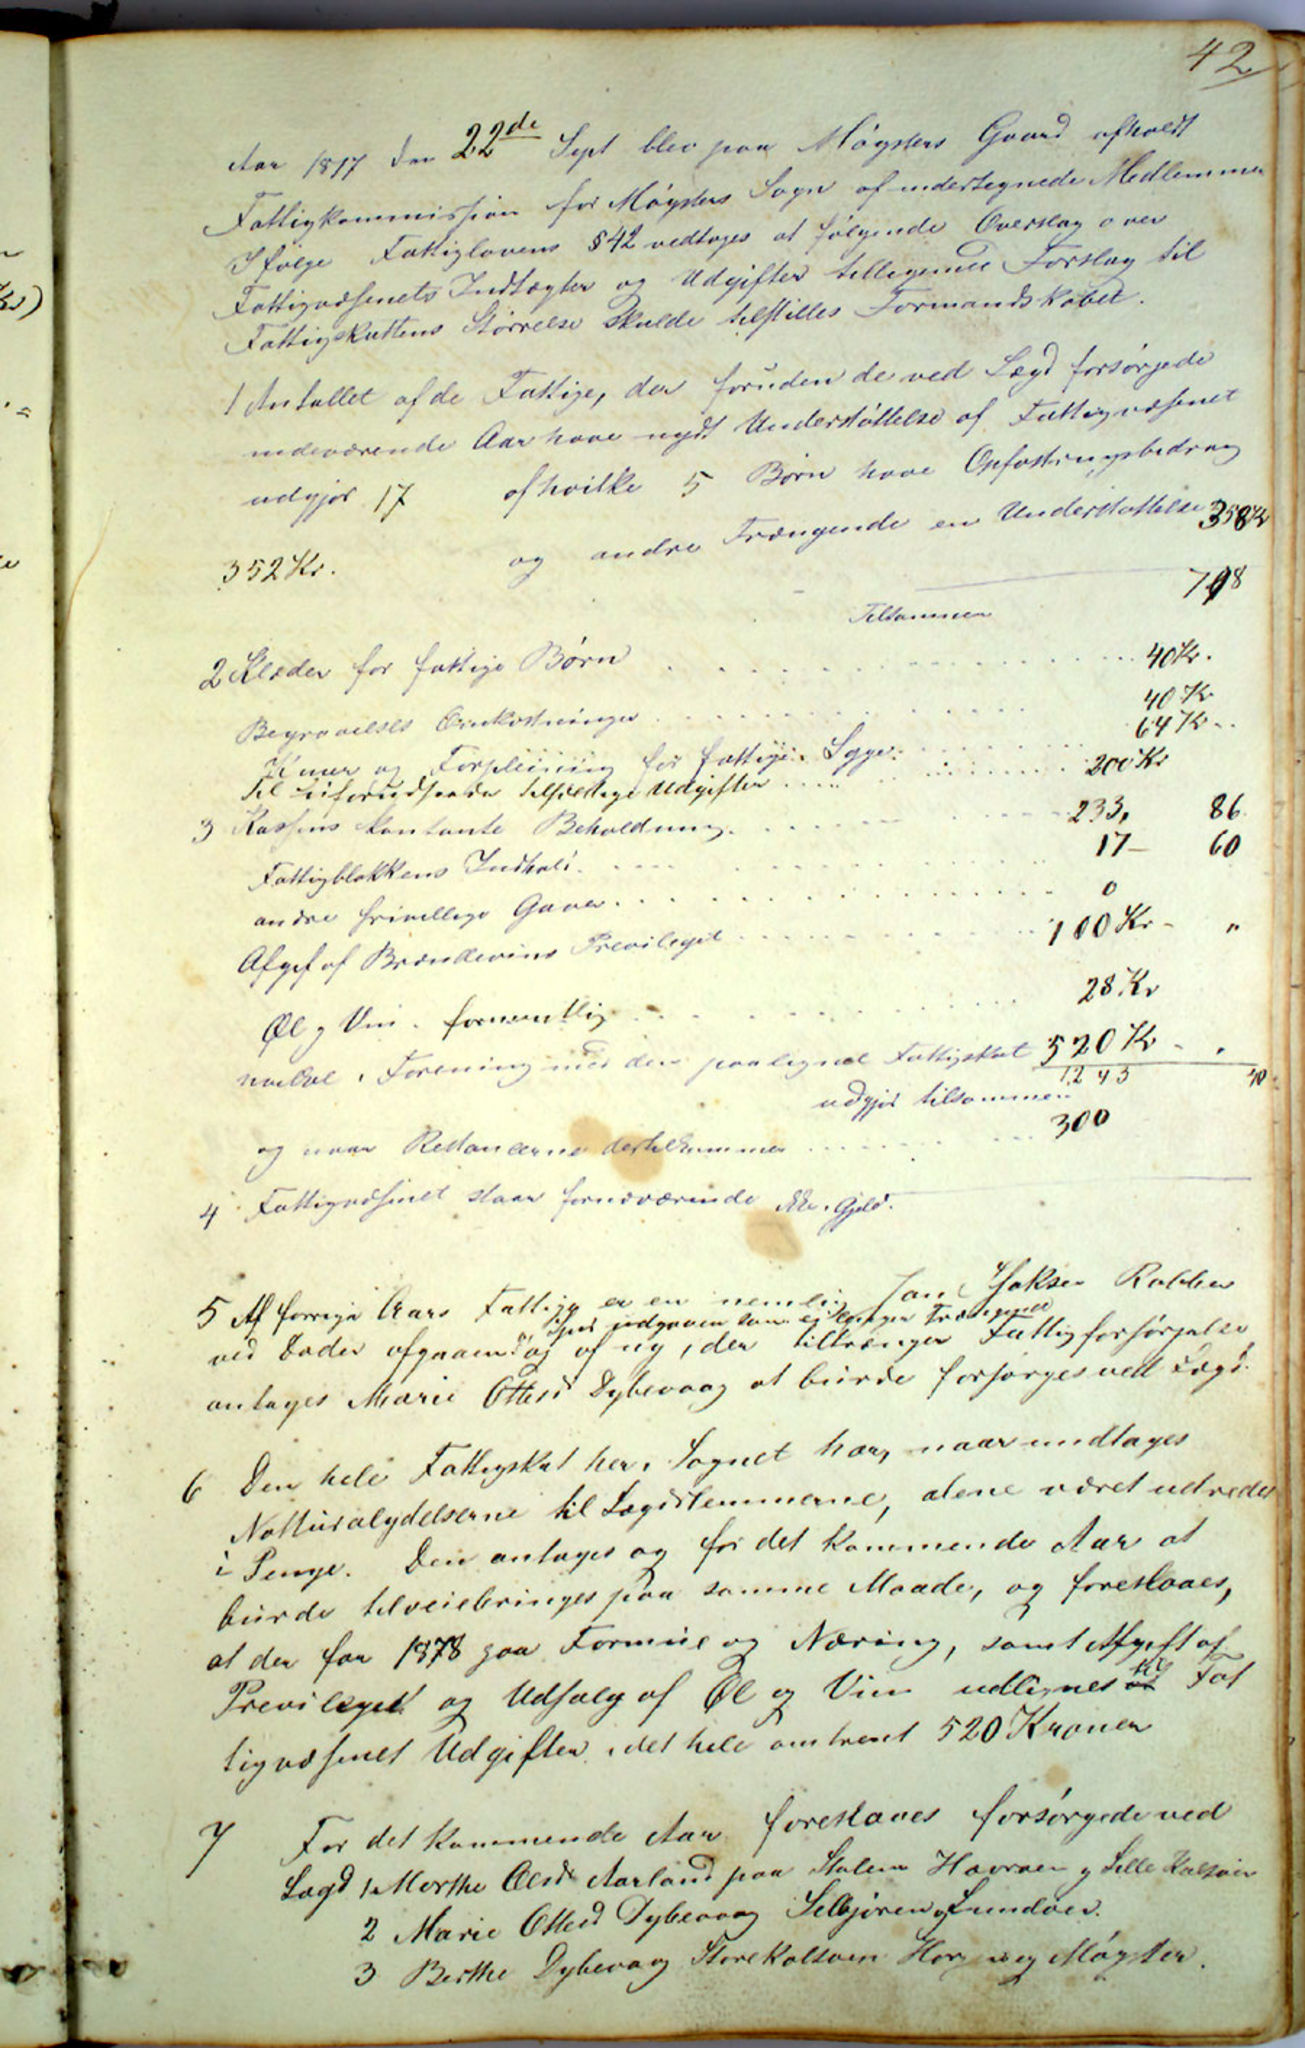 42
Aar 1877 den 22de Sept blev paa Møgsters Gaard afholdt
Fattigkommission for Møgsters Sogn af undertegnede Medlemmer
Ifølge Fattiglovens §42 vedtoges at følgende Overslag over
Fattigvæsenets Indtægter og Udgifter tilligemed Forslag til
Fattigskattens Størrelse skulde tilstilles Formandskabet.
1 Antallet af de Fattige, der foruden de ved Lægd forsørgede
indeværende Aar have nydt Understøttelse af Fattigvæsenet
udgjør 17 af hvilke 5 Børn have Opfostringsbidrag
352 Kr. og andre Trængende en Understøttelse 358 Kr
Tilsammen 718
2 Klæder for fattige Børn 40 Kr.
Begravelses Omkostninger 40 Kr
Kuur og Forpleining for fattige Syge 64 Kr
Til uforudseede tilfældige Udgifter 200 Kr
3 Kassens kontante Beholdning 233, 86
Fattigblokkens Indhold 17 – 60
andre frivillige Gaver 0
Afgif af Brændevins Previleget 100 Kr - "
Øl og Vin formentlig 28 Kr
hvilket i Forening med den paalignede Fattigskat 520 Kr - "
udgjør tilsammen 1243 40
og naar Restancerne dertilkommer 300
4 Fattigvæsenet staar fornærværende ikke i Gjeld.
5 Af forrige Aars Fattige er en nemlig Jan Isaksen
udgaaen som ej længer Trængende
ved Døden afgaaed og af ny, der tiltrænger Fattigforsørgelse
antages Marie Ottesd Dybevaag at burde forsørges ved Lægd.
6 Den hele Fattigskat her i Sognet har, naar undtages
Natturalydelserne til Lægdslemmerne, alene været udredet
i Penge. Den antages og for det kommende Aar at
burde tilveiebringes paa samme Maade, og foreslaaes,
at der for 1878 paa Formue og Næring, samt Afgift af
Previleget og Udsalg af Øl og Vin udlignes til Fat
tigvæsenet Udgifter i det hele omtrent 520 Kroner
7 For det kommende Aar foreslaaes forsørgede ved
Lægd 1 Merthe Olsd Aarland paa Stolem Havraen og Lille Kalsøen
2 Marie Ottesd Dybevaag Selbjøren og Lundøen.
3 Berthe Dybevaag Store Kalsøen Horg og Møgster.